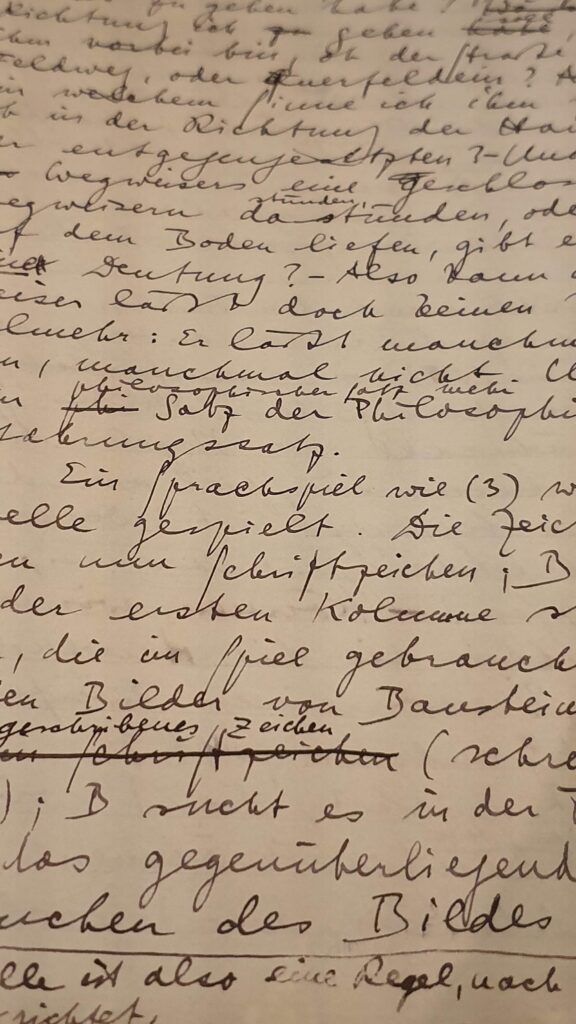 zu geben habe?
Richtung ich zu gehen habe,
vorbei bin, ob der Straße
Feldweg, oder querfeldein?
in welchem Sinne ich ihm
in der Richtung der Han
entgegengesetzten? – Und
Wegweisers eine geschlos
stünden,
egweisern da stünden, ode
f dem Boden liefen, gibt e
Deutung? – Also kann
eiser läßt doch keinen
elmehr: Er läßt manchm
n, manchmal nicht.
philosophischer mehr
phi Satz der Philosophi
fahrungssatz.
Ein Sprachspiel wie (3) w
elle gespielt. Die Zeich
en nun Schriftzeichen; B
der ersten Kolumne s
, die im Spiel gebrauch
en Bilder von Baustein
geschriebenes Zeichen
en Schriftzeichen (schre
); B sucht es in der T
das gegenüberliegend
uchen des Bildes
elle ist also eine Regel, nach
richtet,